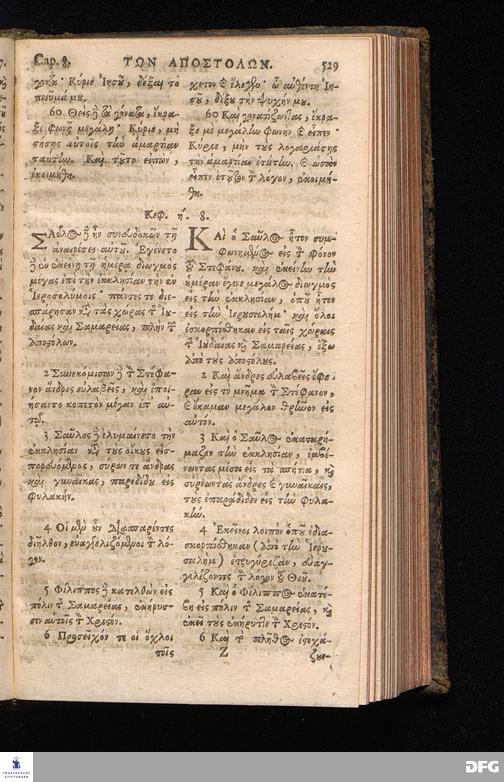 Cap. 8. ΤΩΝ ΑΠΟΣΤΟΛΩΝ. 529
Κύριε Ἰησοῦ, δέξαι τὸ
πνεῦμά μου.
60 Θεὶς ἢ τὰ γόνατα, ἔκρα-
ξε φωνῇ μεγάλῃ· Κύριε, μὴ
στήσῃς αὐτοῖς τὴν ἁμαρτίαν
ταύτην. Καὶ τοῦτο εἰπὼν,
ἐκοιμήθη.
Κεφ. ή. 8.
ΣΑῦλος ἢ ἦν συνευδοκῶν τῇ
ἀναιρέσει αὐτοῦ. Ἐγένετο
ἢ ἐν ἐκείνῃ τῇ ἡμέρᾳ διωγμὸς
μέγας ἐπὶ τὴν ἐκκλησίαν τὴν ἐν
Ἱεροσολύμοις· πάντες τε διε-
σπάρησαν κτ τὰς χώρας τ Ἰου-
δαίας καὶ Σαμαρείας, πλὴν τ
ἀποστόλων.
2 Συνεκόμισαν ἢ τ Στέφα-
νον ἄνδρες εὐλαβεῖς, καὶ ἐποιή-
σαντο κοπετὸν μέγαν ἐπ' αὐ-
τῷ.
3 Σαῦλος ἢ ἐλυμαίνετο τὴν
ἐκκλησίαν κτ τοὺς οἴκους εἰσ-
πορευόμενος, σύρων τε ἄνδρας
καὶ γυναῖκας, παρεδίδου εἰς
φυλακήν.
4 Οἱ μὲν οὖν διασπαρέντες
διῆλθον, εὐαγγελιζόμενοι τ λό-
γον.
5 Φίλιππος ἢ κατελθὼν εἰς
πόλιν τ Σαμαρείας, ἐκήρυσ-
σεν αὐτοῖς τ Χριστόν.
6 Προσεῖχόν τε οἱ ὄχλοι
τοῖς
Ἰη-
σοῦ, δέξου τὴν ψυχήν μου.
60 Καὶ γονατίζωντας, ἔκρα-
ξε μὲ μεγάλην φωνὴν καὶ εἶπεν·
Κύριε, μὴν τοὺς λογαριάσῃς
τὴν ἁμαρτίαν ἐτούτην. καὶ ὡσὰν
εἶπεν ἐτοῦτον τ λόγον, ἐκοιμή-
θη.
ΚΑὶ ὁ Σαῦλος ἦτον συμ-
φωνημένος εἰς τ φόνον
τοῦ Στεφάνου. καὶ ἐκείνην τὴν
ἡμέραν ἔγινε μεγάλος διωγμὸς
εἰς τὴν ἐκκλησίαν, ὁποῦ ἦτον
εἰς τὴν Ἱερουσαλήμ· καὶ ὅλοι
ἐσκορπίσθηκαν εἰς ταῖς χώραις
τ Ἰουδαίας καὶ Σαμαρείας, ἔξω
ἀπὸ τοὺς ἀποστόλους.
2 Καὶ ἄνδρες εὐλαβεῖς ἔφε-
ραν εἰς τὸ μνῆμα τ Στέφανον,
καὶ ἔκαμαν μεγάλον θρῆνον εἰς
αὐτόν.
3 Καὶ ὁ Σαῦλος ἐκαταρή-
μαζεν τὴν ἐκκλησίαν, ἐμβαί-
νωντας μέσα εἰς τὰ σπήτια, καὶ
σύρνωντας ἄνδρες καὶ γυναῖκαις,
τοὺς ἐπαράδιδεν εἰς τὴν φυλα-
κήν.
4 Ἐκεῖνοι λοιπὸν ὁποῦ ἐδια-
σκορπίσθηκαν (ἀπὸ τὴν Ἱερου-
σαλὴμ) ἐτριγύριζαν, εὐαγ-
γελίζοντες τ λόγον τοῦ Θεοῦ.
5 Καὶ ὁ Φίλιππος ἐκατέ-
βη εἰς πόλιν τ Σαμαρείας, καὶ
ἐκεῖ τοὺς ἐκήρυττε τ Χριστόν.
6 Καὶ τὸ πλῆθος ἐπρόσε-
Z
DFG